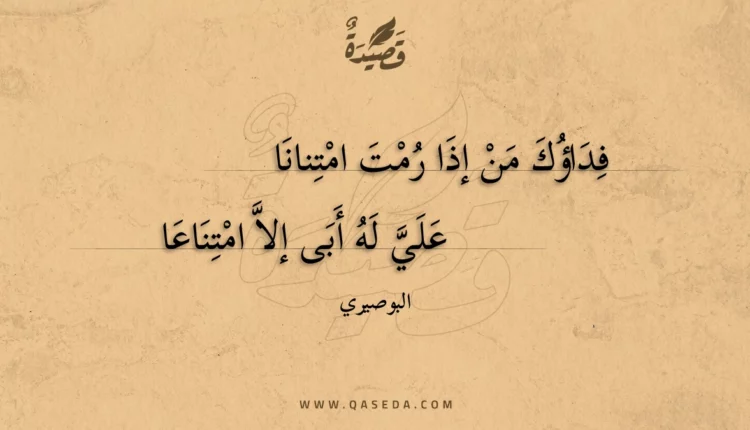 قَصِيْدَةٌ
فِدَاؤُكَ مَنْ إذَا رُمْتَ امْتِنانَا
عَلَيَّ لَهُ أَبَى إلاَّ امْتِنَاعَا
البوصيري
WWW.QASEDA.COM